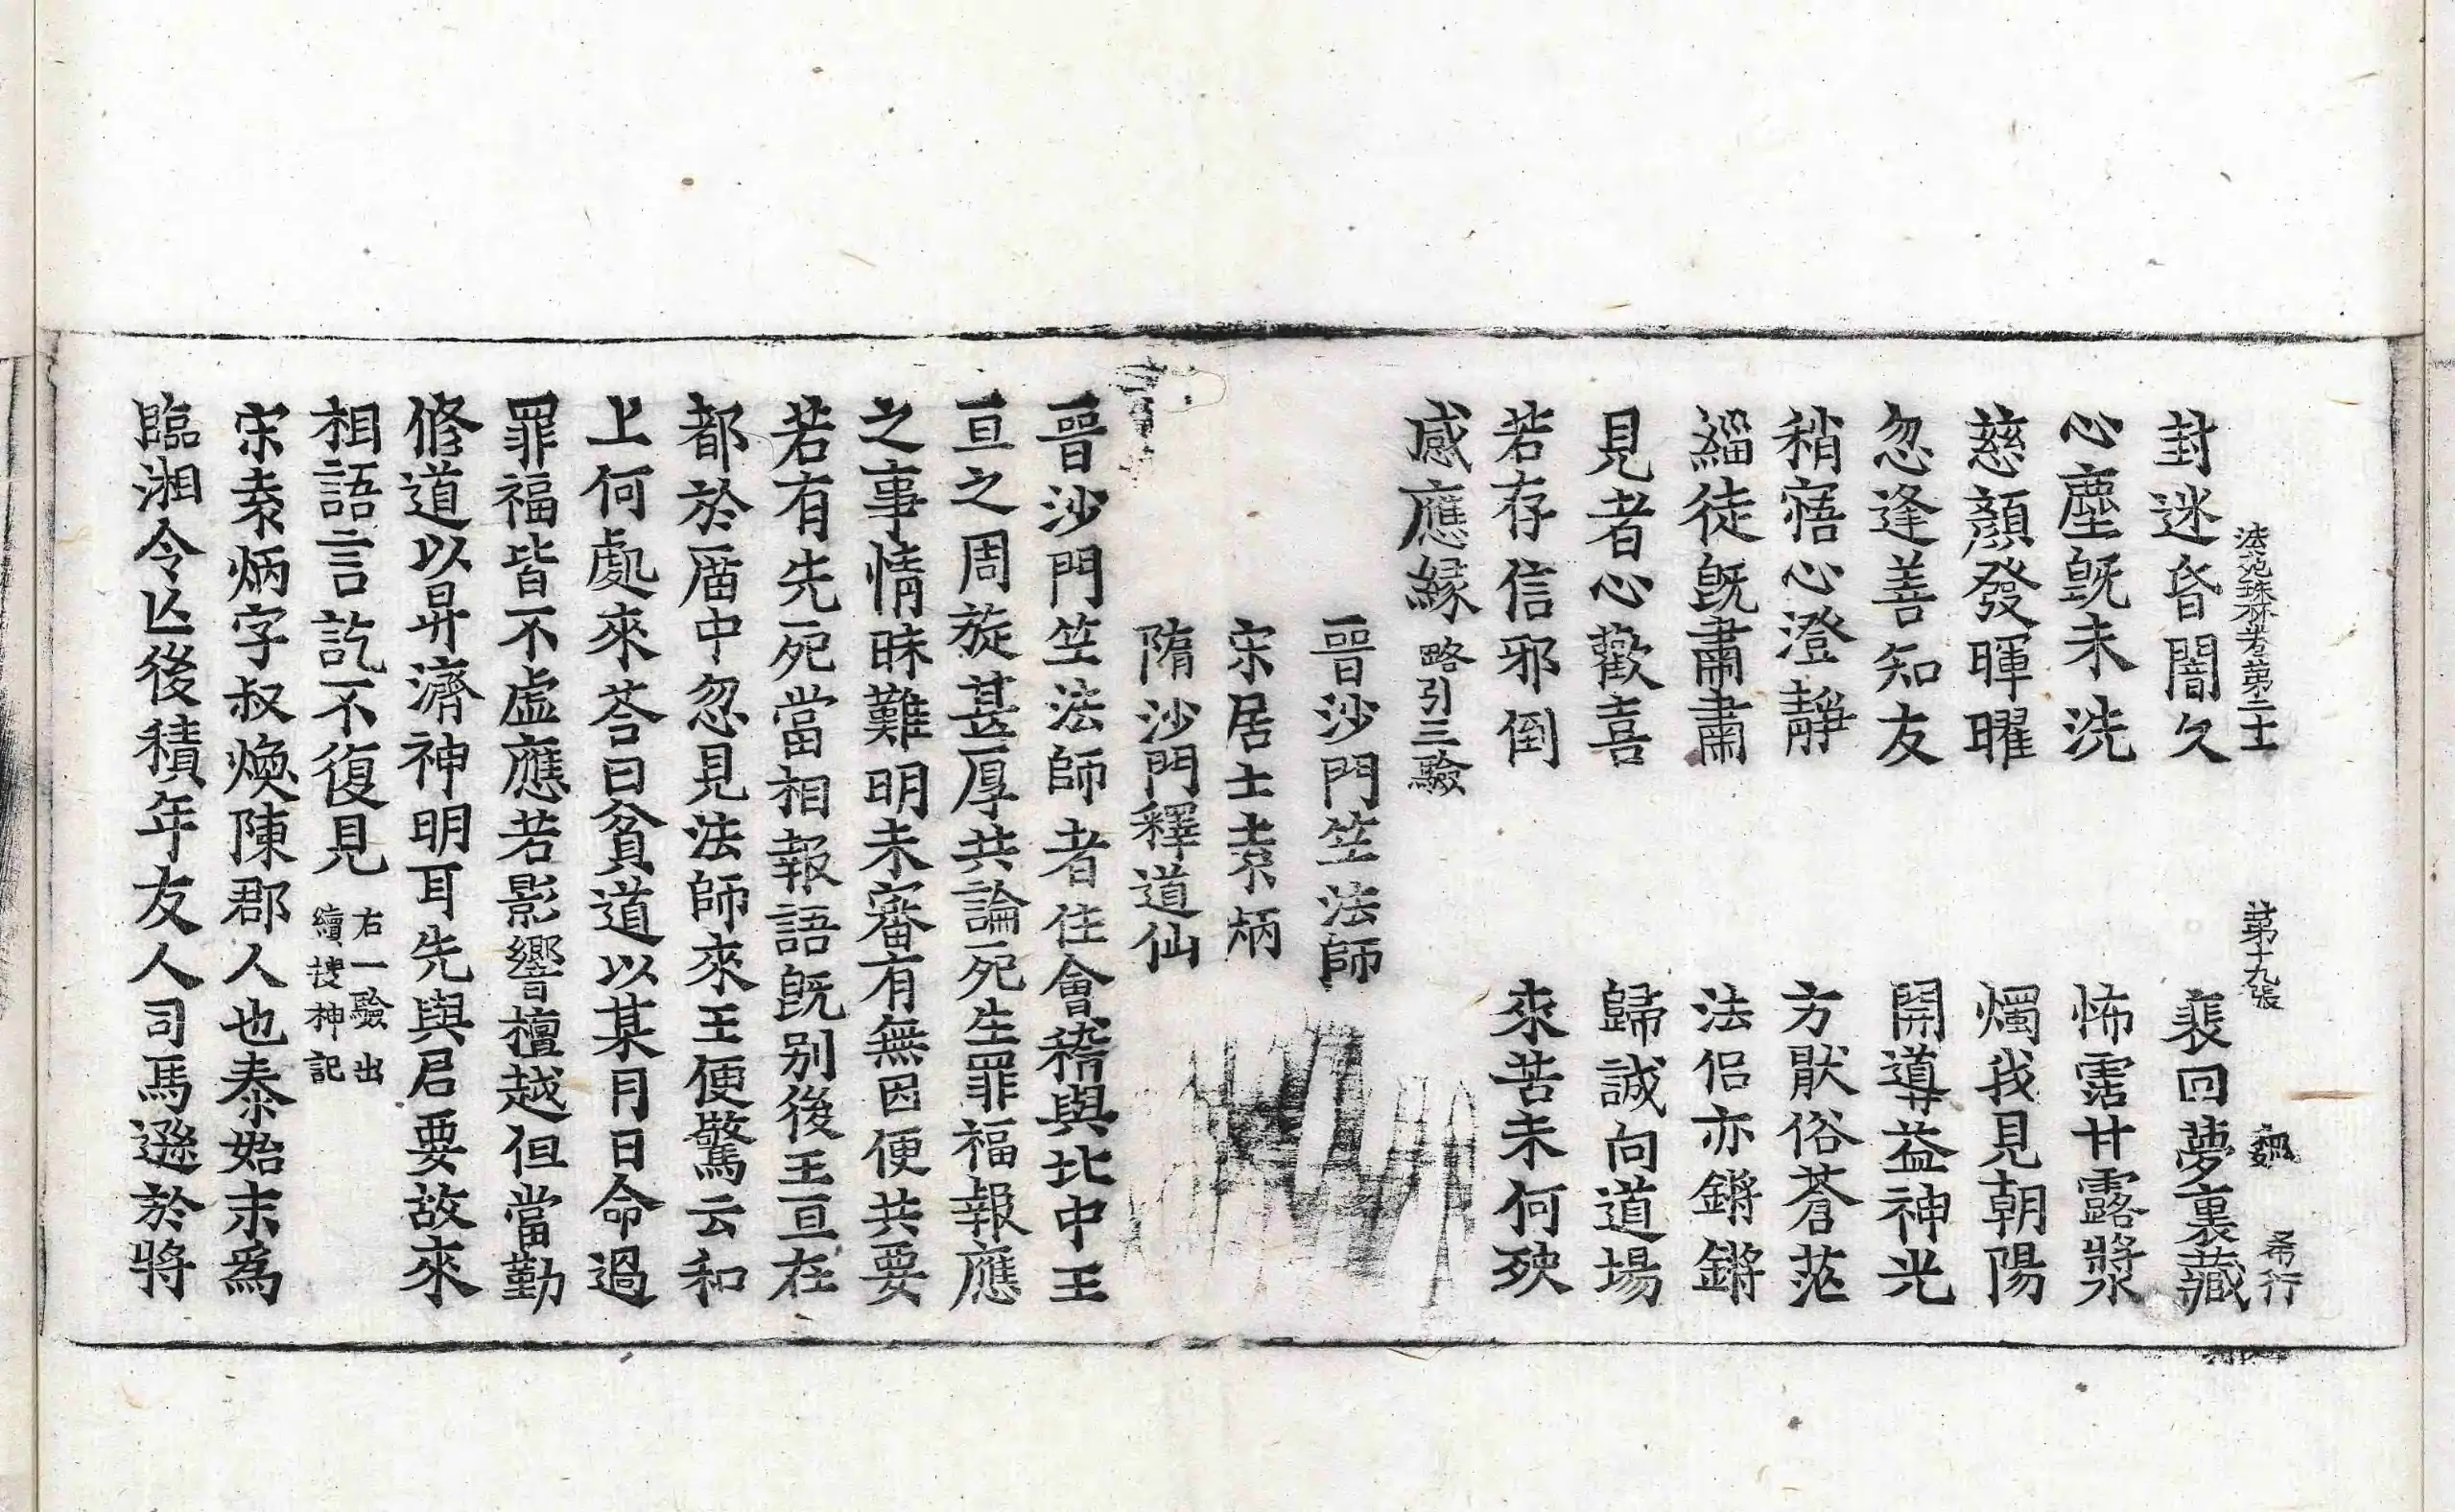 法苑珠林卷第二士　第十九張　飄　希行
封迷昏闇久　裴回夢裏藏
心塵旣未洗　怖霑甘露漿
慈顏發暉曜　燭我見朝陽
忽逢善知友　開導益神光
稍寤心澄靜　方猒俗蒼茫
緇徒旣肅肅　法侶亦鏘鏘
見者心歡喜　歸誠向道場
若存信邪倒　來苦未何殃
感應緣略引三驗
晉沙門竺法師
宋居士素炳
隋沙門釋道仙
晉沙門竺法師者住會稽與北中王
亘之周旋甚厚共論死生罪福報應
之事情昧難明未審有無因便共要
若有先死當相報語旣別後王亘在
都於厝中忽見法師來王便驚云和
上何處來荅曰貧道以某月日命過
罪福皆不虛應若影響檀越但當勤
修道以昇濟神明耳先與君要故來
相語言訖不復見右一驗出續搜神記
宋素炳字叔煥陳郡人也泰始末爲
臨湘令亾後積年友人司馬遜於將